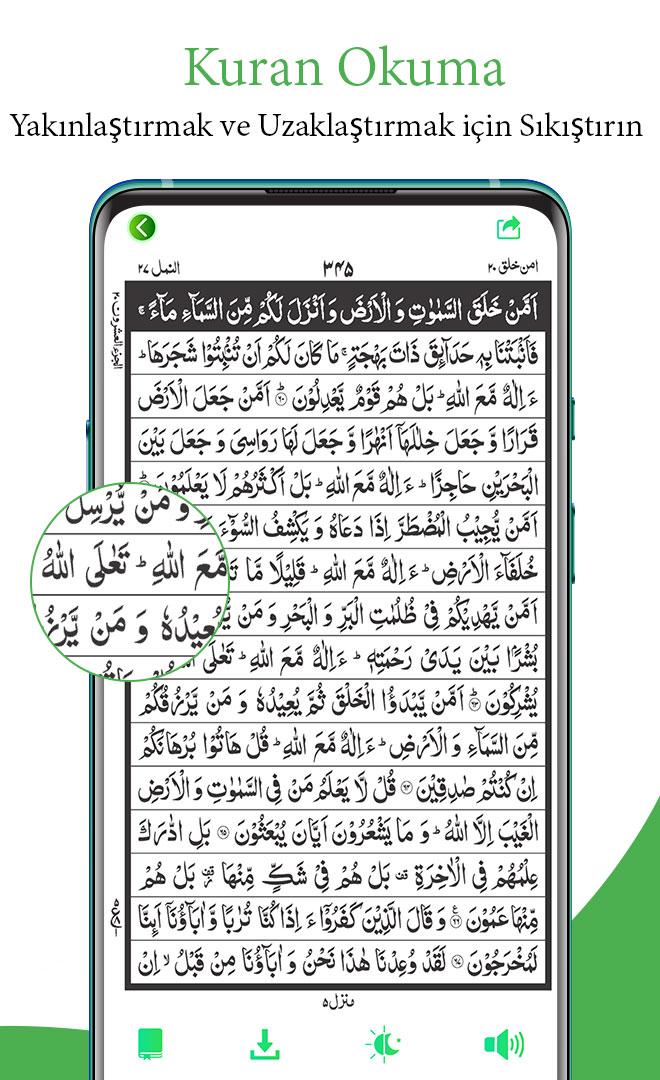 Kuran Okuma
Yakınlaştırmak ve Uzaklaştırmak için Sıkıştırın
امن خلق ۲۰ ۳۴۵ النمل ۲۷
اَمَّنْ خَلَقَ السَّمٰوٰتِ وَ الْاَرْضَ وَ اَنْزَلَ لَكُمْ مِّنَ السَّمَآءِ مَآءً ۚ
فَاَنْۢبَتْنَا بِهٖ حَدَآىِٕقَ ذَاتَ بَهْجَةٍ ۚ مَا كَانَ لَكُمْ اَنْ تُنْۢبِتُوْا شَجَرَهَا ؕ
ءَ اِلٰهٌ مَّعَ اللّٰهِ ؕ بَلْ هُمْ قَوْمٌ یَّعْدِلُوْنَ ۶۰ اَمَّنْ جَعَلَ الْاَرْضَ
قَرَارًا وَّ جَعَلَ خِلٰلَهَاۤ اَنْهٰرًا وَّ جَعَلَ لَهَا رَوَاسِیَ وَ جَعَلَ بَیْنَ
الْبَحْرَیْنِ حَاجِزًا ؕ ءَ اِلٰهٌ مَّعَ اللّٰهِ ؕ بَلْ اَكْثَرُهُمْ لَا یَعْلَمُوْنَ
اَمَّنْ یُّجِیْبُ الْمُضْطَرَّ اِذَا دَعَاهُ وَ یَكْشِفُ السُّوْٓءَ
خُلَفَآءَ الْاَرْضِ ؕ ءَ اِلٰهٌ مَّعَ اللّٰهِ ؕ قَلِیْلًا مَّا
اَمَّنْ یَّهْدِیْكُمْ فِیْ ظُلُمٰتِ الْبَرِّ وَ الْبَحْرِ وَ مَنْ
بُشْرًۢا بَیْنَ یَدَیْ رَحْمَتِهٖ ؕ ءَ اِلٰهٌ مَّعَ اللّٰهِ ؕ تَعٰلَى
یُشْرِكُوْنَ ۶۳ اَمَّنْ یَّبْدَؤُا الْخَلْقَ ثُمَّ یُعِیْدُهٗ وَ مَنْ یَّرْزُقُكُمْ
مِّنَ السَّمَآءِ وَ الْاَرْضِ ؕ ءَ اِلٰهٌ مَّعَ اللّٰهِ ؕ قُلْ هَاتُوْا بُرْهَانَكُمْ
اِنْ كُنْتُمْ صٰدِقِیْنَ ۶۴ قُلْ لَّا یَعْلَمُ مَنْ فِی السَّمٰوٰتِ وَ الْاَرْضِ
الْغَیْبَ اِلَّا اللّٰهُ ؕ وَ مَا یَشْعُرُوْنَ اَیَّانَ یُبْعَثُوْنَ ۶۵ بَلِ ادّٰرَكَ
عِلْمُهُمْ فِی الْاٰخِرَةِ بَلْ هُمْ فِیْ شَكٍّ مِّنْهَا بَلْ هُمْ
مِّنْهَا عَمُوْنَ ۶۶ وَ قَالَ الَّذِیْنَ كَفَرُوْۤا ءَ اِذَا كُنَّا تُرٰبًا وَّ اٰبَآؤُنَاۤ اَىِٕنَّا
لَمُخْرَجُوْنَ ۶۷ لَقَدْ وُعِدْنَا هٰذَا نَحْنُ وَ اٰبَآؤُنَا مِنْ قَبْلُ ۙ اِنْ
الجزء العشرون ۲۰
وَ مَنْ یُّرْسِلُ
مَّعَ اللّٰهِ ؕ تَعٰلَى اللّٰهُ
وَ مَنْ
منزل ۵